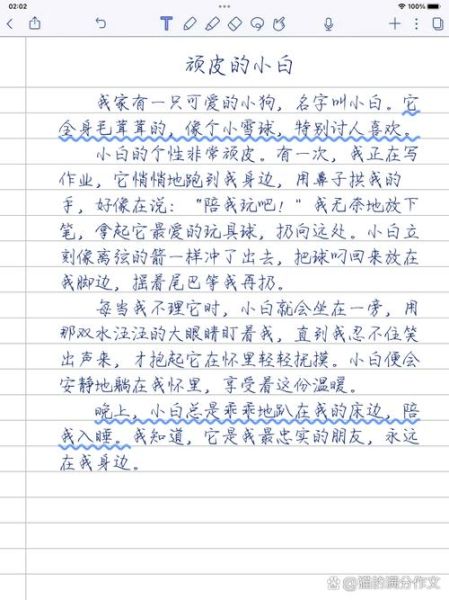 02:02
100%
顽皮的小白
我家有一只可爱的小狗，名字叫小白。它
全身毛茸茸的，像个小雪球，特别讨人喜欢。
小白的个性非常顽皮。有一次，我正在写
作业，它悄悄地跑到我身边，用鼻子拱我的
手，好像在说：“陪我玩吧！”我无奈地放下
笔，拿起它最爱的玩具球，扔向远处。小白立
刻像离弦的箭一样冲了出去，把球叼回来放在
我脚边，摇着尾巴等我再扔。
每当我不理它时，小白就会坐在一旁，用
那双水汪汪的大眼睛盯着我，直到我忍不住笑
出声来，才抱起它在怀里轻轻抚摸。小白便会
安静地躺在我怀里，享受着这份温暖。
晚上，小白总是乖乖地趴在我的床边，陪
我入睡。我知道，它是我最忠实的朋友，永远
在我身边。
@猫的满分作文